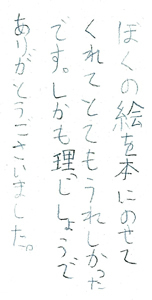 ぼくの絵を本にのせて
くれてとてもうれしかった
です。しかも理いじしょうで
ありがとうございました。